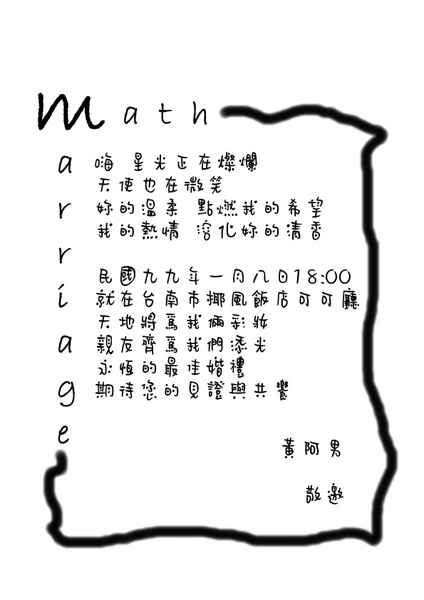 math
marriage
嗨 星光正在燦爛
天使也在微笑
妳的溫柔 點燃我的希望
我的熱情 溶化妳的清香
民國九九年一月八日18:00
就在台南市椰風飯店可可廳
天地將為我倆彩妝
親友齊為我們添光
永恆的最佳婚禮
期待您的見證與共饗
黃阿男
敬邀